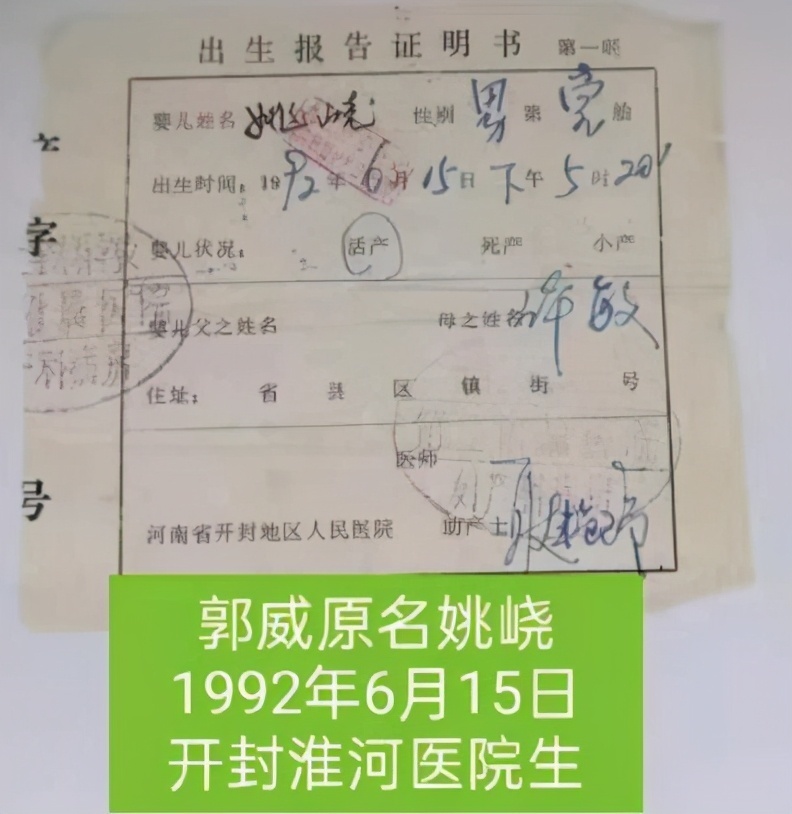 出生报告证明书 第一联
婴儿姓名 姚峣 性别 男 第 壹 胎
出生时间：1992年6月15日下午5时20'
婴儿状况： 活产 死产 小产
婴儿父之姓名 母之姓名 许敏
住址： 省 县 区 镇 街 号
医师
河南省开封地区人民医院 助产士
字
号
郭威原名姚峣
1992年6月15日
开封淮河医院生